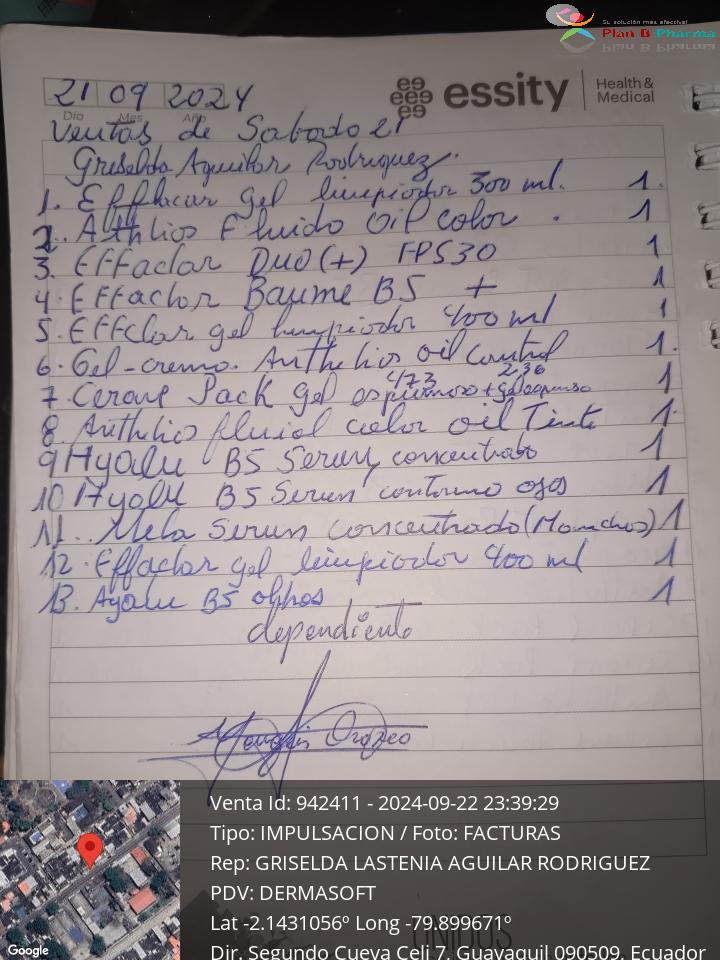 Su solución más efectiva!
Plan B Pharma
21 09 2024
Día Mes Año
essity
Health &
Medical
Ventas de Sabado 21
Griselda Aguilar Rodriguez.
1. Efflacar gel limpiador 300 ml. 1.
2. Athlios Fluido oil color . 1
3. Effaclar Duo(+) FPS30 1
4. Effaclor Baume B5 + 1
5. Effclar gel limpiador 400 ml 1
6. Gel-crema. Anthelios oil control 1.
7. Cerave Pack gel espumoso 473 + gel espumoso 236 1
8. Anthelios fluid color oil Tinte 1.
9 Hyalu B5 Serum concentrado 1
10 Hyalu B5 Serum contorno ojos 1
11. Mela Serum concentrado (Manchas) 1
12. Effaclar gel limpiador 400 ml 1
13. Ayalu B5 1
dependiente
Orozco
Venta Id: 942411 - 2024-09-22 23:39:29
Tipo: IMPULSACION / Foto: FACTURAS
Rep: GRISELDA LASTENIA AGUILAR RODRIGUEZ
PDV: DERMASOFT
Lat -2.1431056º Long -79.899671º
Dir. Segundo Cueva Celi 7, Guayaquil 090509, Ecuador
Google